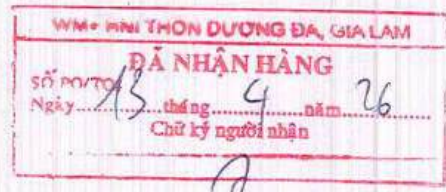 WM+ HNI THÔN DƯƠNG ĐÁ, GIA LÂM
ĐÃ NHẬN HÀNG
SỐ PO/TO
Ngày 13 tháng 4 năm 26
Chữ ký người nhận